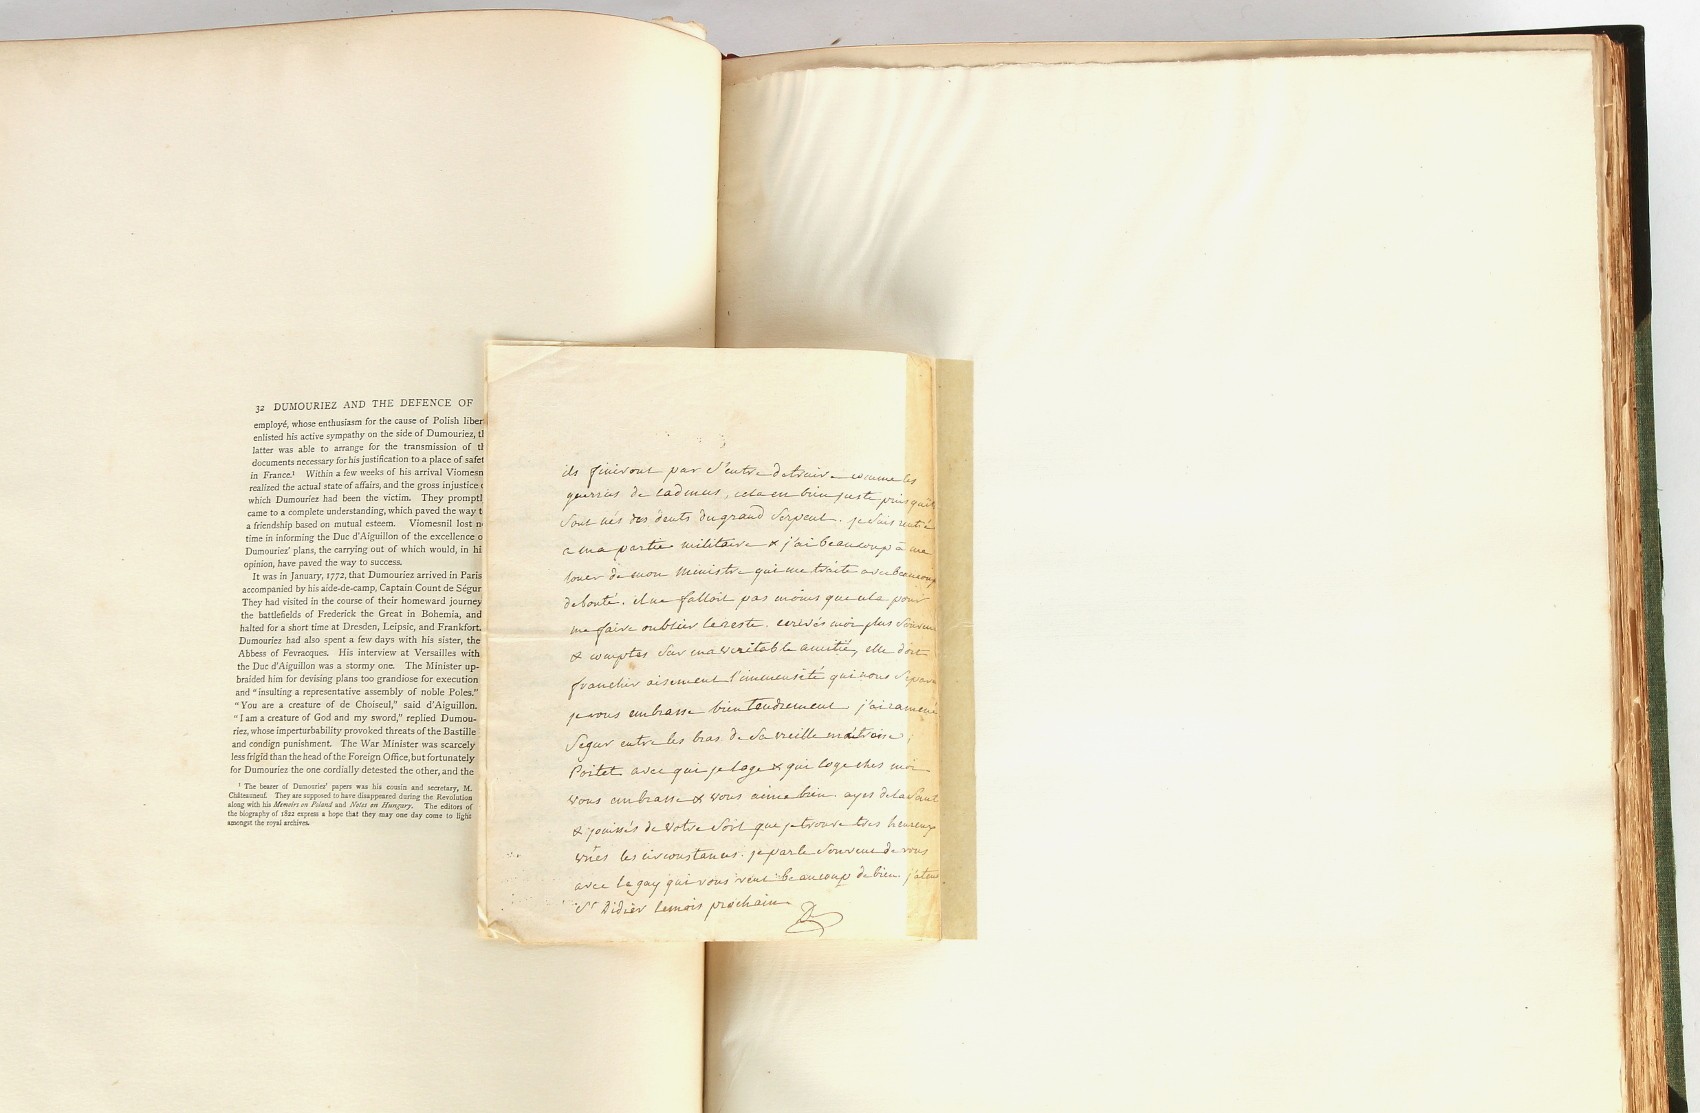 32 DUMOURIEZ AND THE DEFENCE OF
employé, whose enthusiasm for the cause of Polish liber
enlisted his active sympathy on the side of Dumouriez, t
latter was able to arrange for the transmission of t
documents necessary for his justification to a place of safet
in France.¹ Within a few weeks of his arrival Viomesn
realized the actual state of affairs, and the gross injustice
which Dumouriez had been the victim. They promptl
came to a complete understanding, which paved the way t
a friendship based on mutual esteem. Viomesnil lost n
time in informing the Duc d'Aiguillon of the excellence o
Dumouriez' plans, the carrying out of which would, in hi
opinion, have paved the way to success.
It was in January, 1772, that Dumouriez arrived in Paris
accompanied by his aide-de-camp, Captain Count de Ségur
They had visited in the course of their homeward journey
the battlefields of Frederick the Great in Bohemia, and
halted for a short time at Dresden, Leipsic, and Frankfort.
Dumouriez had also spent a few days with his sister, the
Abbess of Fevracques. His interview at Versailles with
the Duc d'Aiguillon was a stormy one. The Minister up-
braided him for devising plans too grandiose for execution
and "insulting a representative assembly of noble Poles."
"You are a creature of de Choiseul," said d'Aiguillon.
"I am a creature of God and my sword," replied Dumou-
riez, whose imperturbability provoked threats of the Bastille
and condign punishment. The War Minister was scarcely
less frigid than the head of the Foreign Office, but fortunately
for Dumouriez the one cordially detested the other, and the
¹ The bearer of Dumouriez' papers was his cousin and secretary, M.
Châteauneuf. They are supposed to have disappeared during the Revolution
along with his Memoirs on Poland and Notes on Hungary. The editors of
the biography of 1822 express a hope that they may one day come to light
amongst the royal archives.
ils finiront par s'entre detruire comme les
guerriers de Cadmus, cela est bien juste puisqu'ils
sont nés des dents du grand Serpent. je suis rentré
a ma partie militaire & j'ai beaucoup à me
louer de mon Ministre qui me traite avec beaucoup
de bonté. il ne falloit pas moins que cela pour
me faire oublier le reste. ecrivés moi plus souvent
& comptes sur ma veritable amitié, elle doit
franchir aisement l'immensité qui nous separe
je vous embrasse bien tendrement j'ai ramené
Segur entre les bras de sa vieille maitresse;
Poitet avec qui je loge & qui loge ches moi
vous embrasse & vous aime bien. ayes de la santé
& jouissés de votre sort que je trouve tres heureux
vües les circonstances. je parle souvent de vous
avec le gay qui vous veut beaucoup de bien. j'atens
St Didier le mois prochain